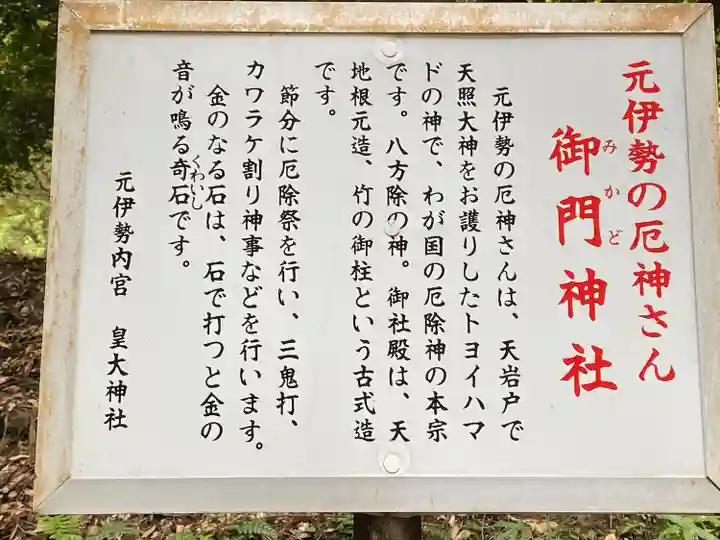 元伊勢の厄神さん
御門神社
みかど
元伊勢の厄神さんは、天岩戸で
天照大神をお護りしたトヨイハマ
ドの神で、わが国の厄除神の本宗
です。八方除の神。御社殿は、天
地根元造、竹の御柱という古式造
です。
節分に厄除祭を行い、三鬼打、
カワラケ割り神事などを行います。
金のなる石は、石で打つと金の
音が鳴る奇石です。
くわいし
元伊勢内宮 皇大神社